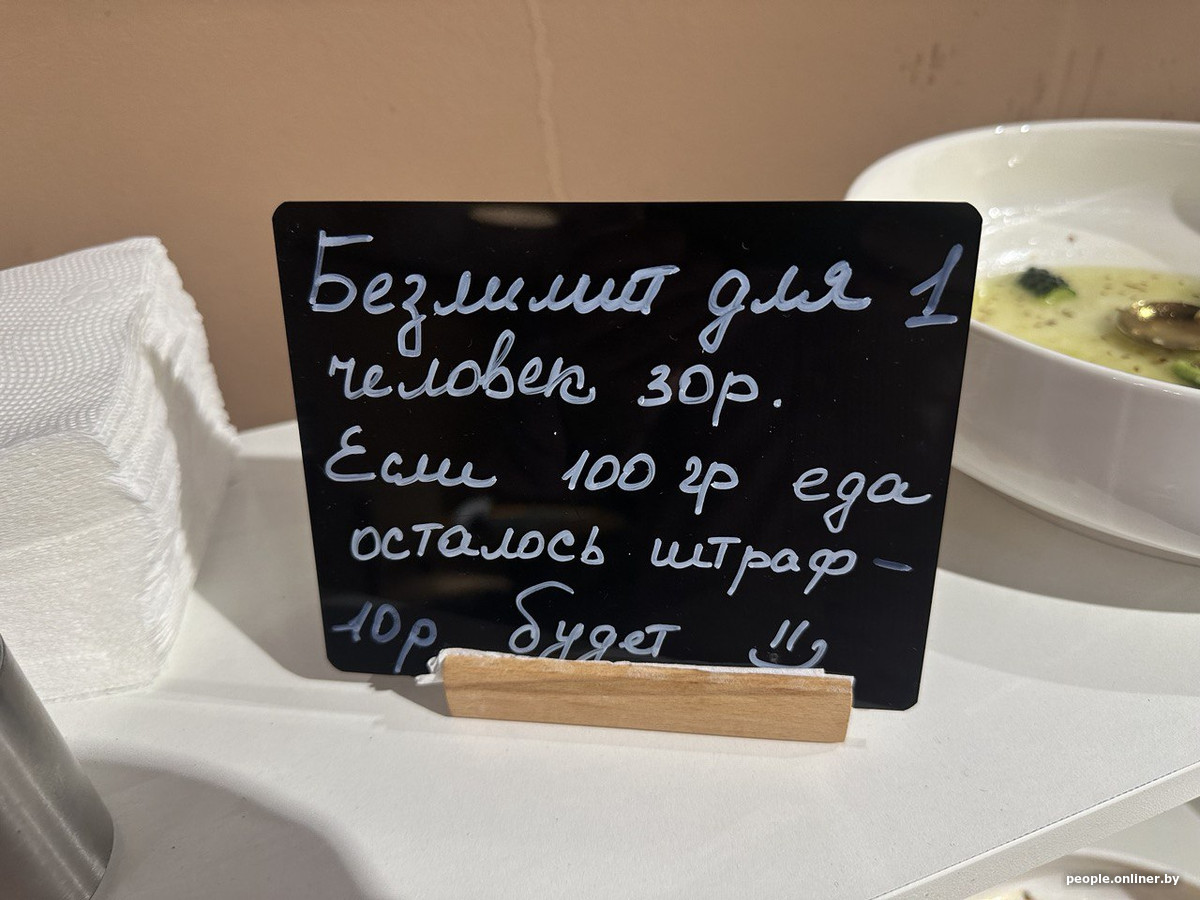 Безлимит для 1
человек 30р.
Если 100 гр еда
осталось штраф-
10р будет
people.onliner.by